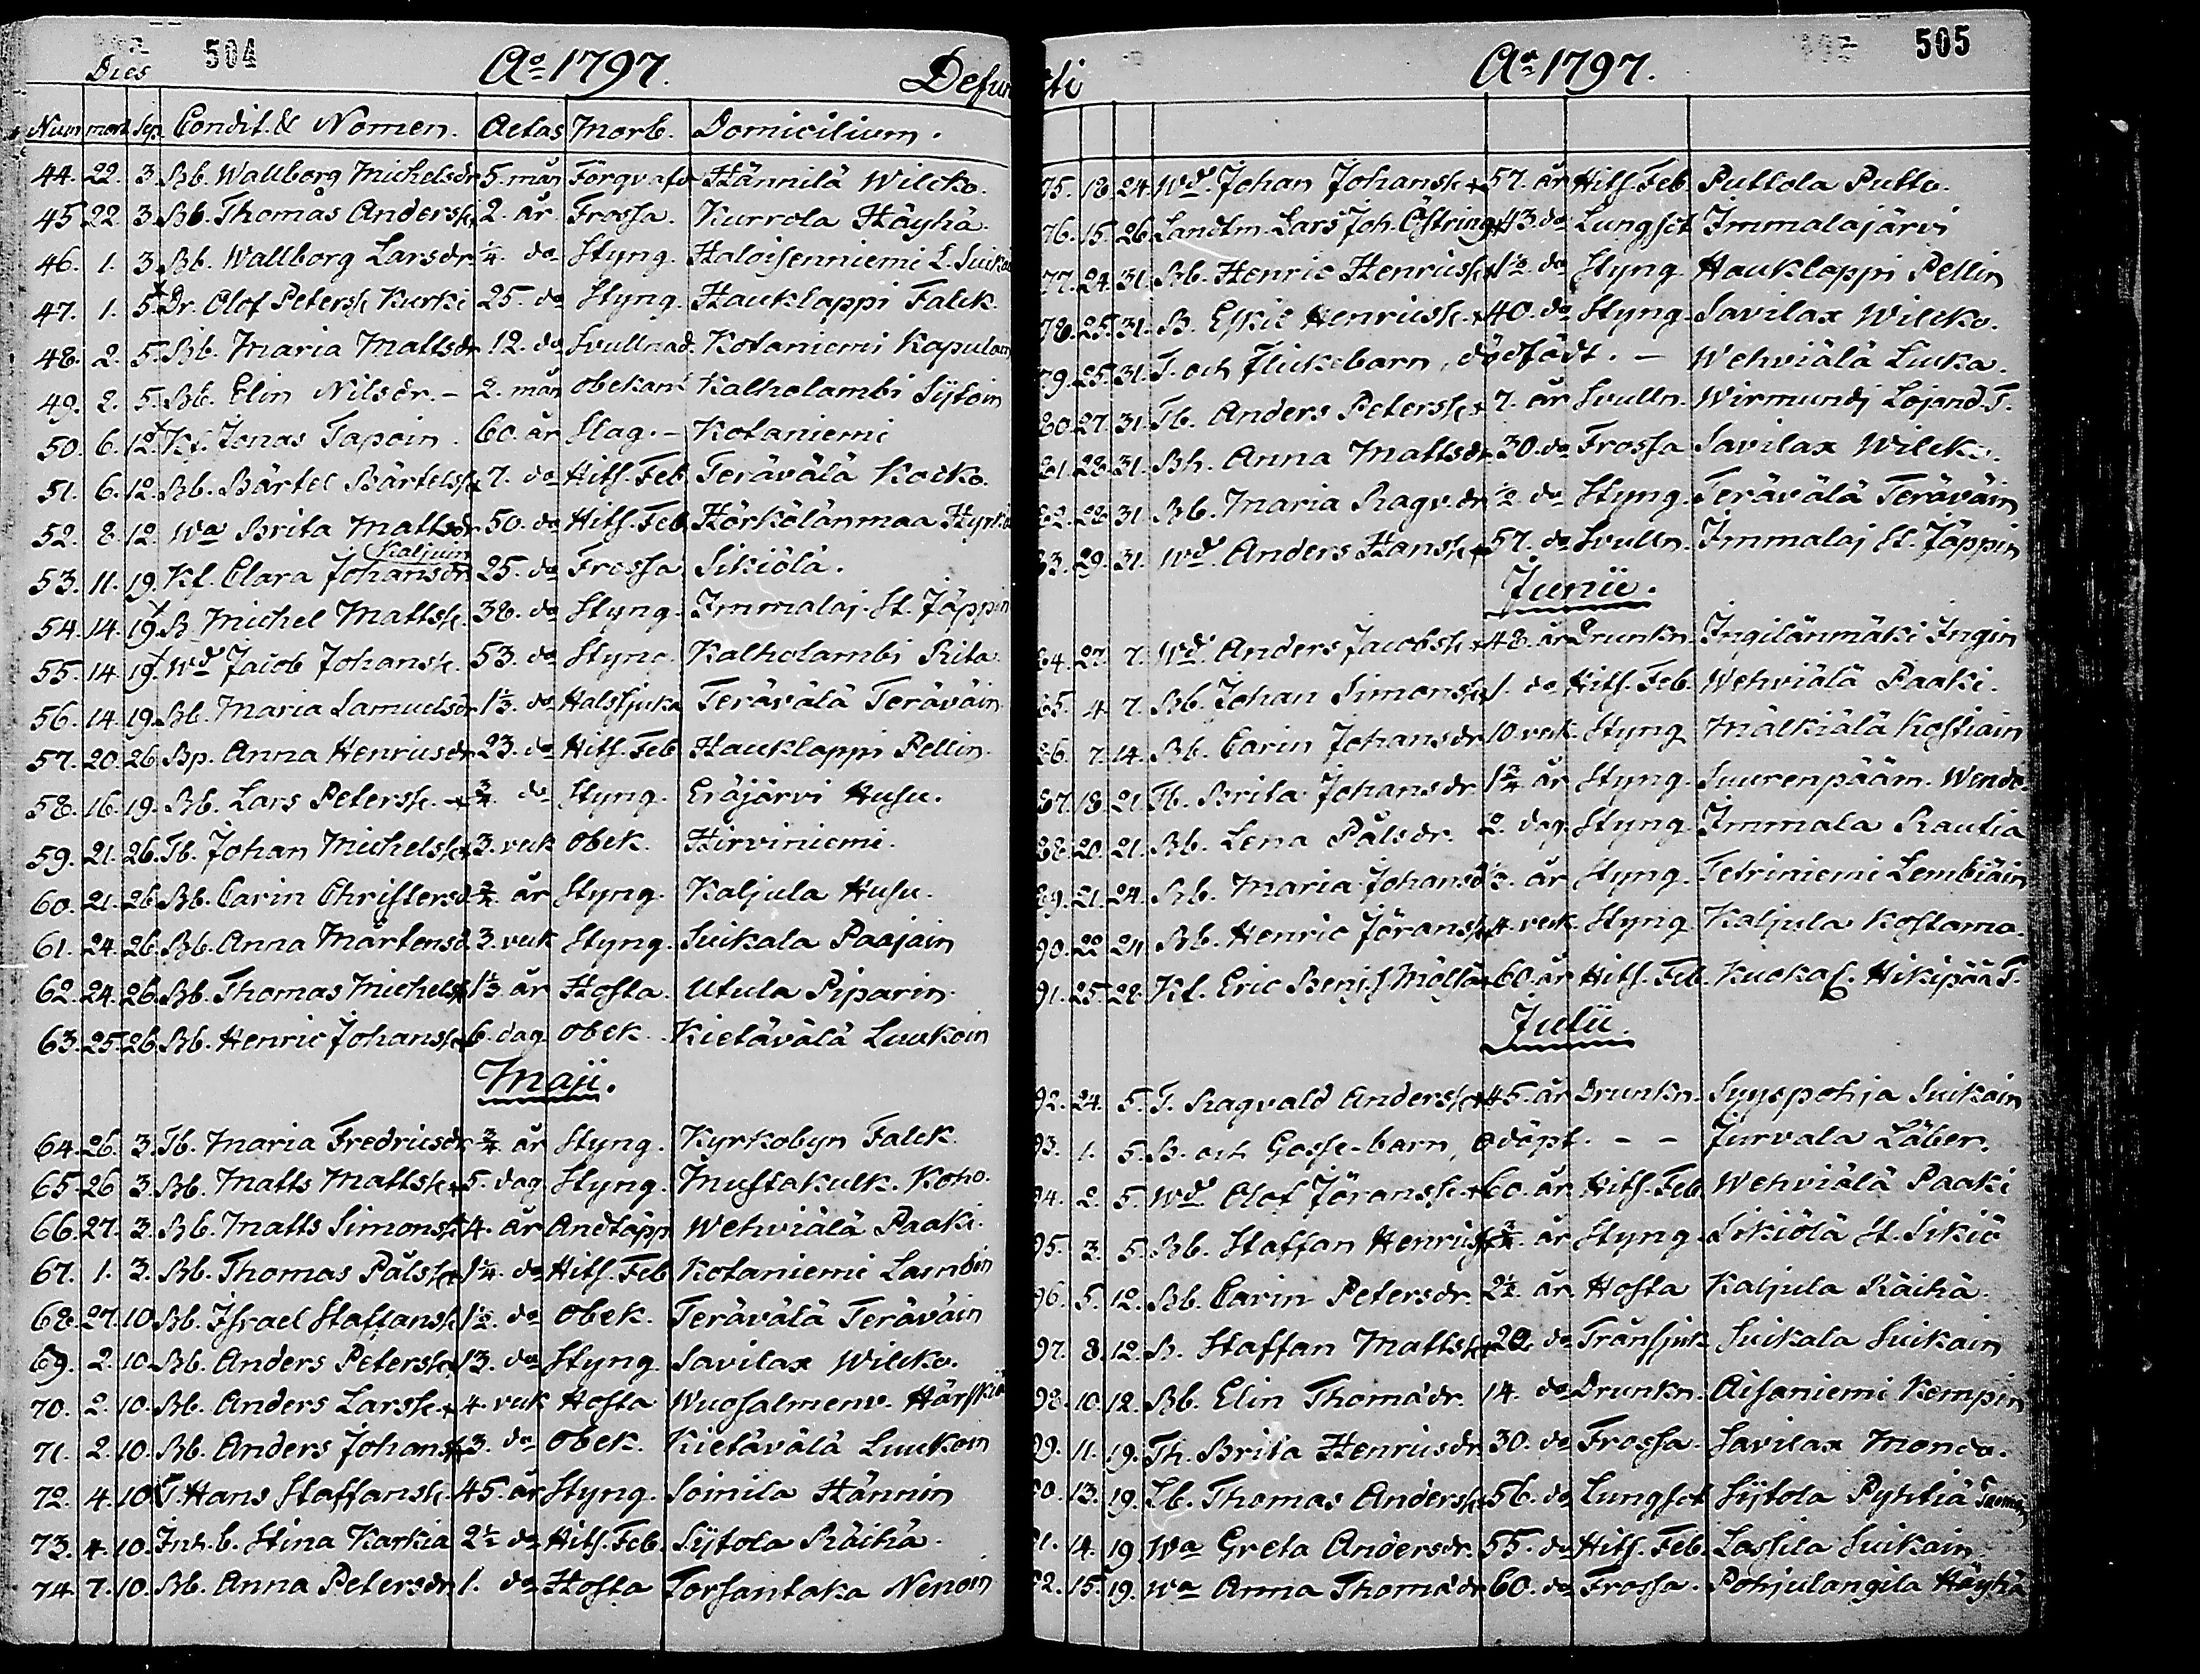 504
Dies Ao 1797. Defun
Num mort. Sep. Condit. & Nomen. Aetas Morb. Domicilium.
44. 22. 3. Bb. Wallborg Michelsdr 5. mån Förqvafd Hännilä Wilcko.
45 22 3. Bb. Thomas Andersk 2. år Frossa. Kurrola Häyhä.
46. 1. 3. Bb. Wallborg Larsdr. 1/4. do Styng. Haloisenniemi L. Suikai
47. 1. 5. Dr. Olof Petersk Kurki 25. do Styng. Hauklappi Falck.
48. 2. 5. Bb. Maria Mattsdr 12. do Svullnad. Kotaniemi Kapulain
49. 2. 5. Bb. Elin Nilsdr. – 2. mån obekant Kalholambi Sÿtoin
50. 6. 12. Kf. Jonas Tapoin. 60. år Slag. – Kotaniemi
51. 6. 12. Bb. Bärtel Bärtelsk 7. do Hits. Feb. Terävälä Koiko.
52. 8. 12. Wa Brita Mattsdr 50. do Hits. Feb. Hörkölänmaa Hyrkö
Kaljuin
53. 11. 19. Kf. Clara Johansdr 25. do Frossa Sikiölä.
54. 14. 19. B Michel Mattsk. 38. do Styng. Immalaj. St. Jäppin
55. 14. 19. Wd Jacob Johansk. 53. do Styng. Kalholambi Rita.
56. 14. 19. Bb. Maria Samuelsdr 1 1/3. do Halssjuka Terävälä Teräväin
57. 20. 26. Bp. Anna Henricsdr 23. do Hits. Feb Hauklappi Pellin.
58. 16. 19. Bb. Lars Petersk. 3/4. do Styng. Eräjärvi Husu.
59. 21. 26. Tb. Johan Michelsk 3. veck obek. Hirviniemi.
60. 21. 26. Bb. Carin Christersd 3/4. år Styng. Kaljula Husu.
61. 24. 26. Bb. Anna Mårtensd. 3. veck Styng. Suikala Paajain
62. 24. 26. Bb. Thomas Michelsk 1 1/3. år Hosta. Utula Piparin.
63. 25. 26. Bb. Henric Johansk 6. dag obek. Kietävälä Luukoin
Maji.
64. 26. 3. Tb. Maria Fredricsdr 3/4. år Styng. Kyrkobyn Falck.
65. 26 3. Bb. Matts Mattsk 5. dag Styng. Mustakulk. Koho.
66. 27. 3. Bb. Matts Simonsk 4. år Andtäpp Wehviälä Paaki.
67. 1. 3. Bb. Thomas Pålsk 1 1/4. do Hits. Feb Kotaniemi Lambin
68. 27. 10. Bb. Israel Staffansk 1 1/2. do obek. Terävälä Teräväin
69. 2. 10. Bb. Anders Petersk 13. do Styng. Savilax Wilcko.
70. 2. 10. Bb. Anders Larsk. 4. veck Hosta Wuosalmenv. Härskiä
71. 2. 10. Bb. Anders Johansk 3. do obek. Kietävälä Luukoin
72. 4. 10 T. Hans Staffansk. 45. år Styng. Soinila Hännin
73. 4. 10. Inh. b. Stina Karkia 2 1/2 do Hits. Feb. Sÿtola Räihä.
74. 7. 10. Bb. Anna Petersdr 1. do Hosta Torsantaka Nenoin
505
cti Ao 1797.
75. 18. 24. Wd. Johan Johansk 57. år Hits. Feb. Puttola Putto.
76. 15. 26. Landtm. Lars Joh. Östring 43. do Lungsot Immalajärvi
77. 24. 31. Bb. Henric Henricsk 1 1/2. do Styng. Hauklappi Pellin
78. 25. 31. B. Eskil Henricsk. 40. do Styng. Savilax Wilcko.
79. 25. 31. T. och Flickebarn, dödfödt. – Wehviälä Luka.
80. 27. 31. Tb. Anders Petersk 7. år Svulln. Wirmundj Lojand. T.
81. 28. 31. Bh. Anna Mattsdr 30. do Frossa Savilax Wilcko.
82. 28. 31. Bb. Maria Ragv.dr 1/2. do Styng. Terävälä Teräväin
83. 29. 31. Wd. Anders Hansk 57. do Svulln. Immalaj St. Jäppin
Junii.
84. 27. 7. Wd. Anders Jacobsk 48. år Drunkn. Ingilänmäki Ingin
85. 4. 7. Bb. Johan Simonsk 1. do Hits. Feb. Wehviälä Paaki.
86. 7. 14. Bb. Carin Johansdr 10 veck. Styng Mälkiälä Kostiain
87. 18. 21. Tb. Brita Johansdr 1 3/4 år Styng. Suurenpääm. Wendo.
88. 20. 21. Bb. Lena Pålsdr. 2. dag Styng. Immala Rautia
89. 21. 24. Bb. Maria Johansd 1/2. år Styng. Tetriniemi Lembiäin
90. 22 24 Bb. Henric Jöransk 4. veck Styng. Kaljula Kostama.
91. 25. 28. Kf. Eric Benj.s. Mölsä 60. år Hits. Feb. Kuokas. Hikipää T.
Julii.
92. 24. 5. T. Ragvald Andersk 45. år Drunkn. Syyspohja Suikain
93. 1. 5. B. och Gosse-barn, odöpt. – – Jurvala Läber.
94. 2. 5. Wd Olof Jöransk. 60. år Hits. Feb. Wehviälä Paaki
95. 3. 5. Bb. Staffan Henrics 3/4. år Styng. Sikiölä St. Sikiö
96. 5. 12. Bb. Carin Petersdr. 2 1/2. år Hosta Kaljula Räihä.
97. 8. 12. B. Staffan Mattsk 20. do Trånsjuk Suikala Suikain
98. 10. 12. Bb. Elin Thomædr. 14. do Drunkn. Aisaniemi Kempin
99. 11. 19. Th. Brita Henricsdr 30. do Frossa. Savilax Monda.
00. 13. 19. Lb. Thomas Andersk 56. do Lungsot Sÿtola Pyhtiä
01. 14. 19 Wa Greta Andersdr. 55. do Hits. Feb. Lassila Suikain
02. 15. 19. Wa Anna Thomædr 60. do Frossa. Pohjulangila Häyhä